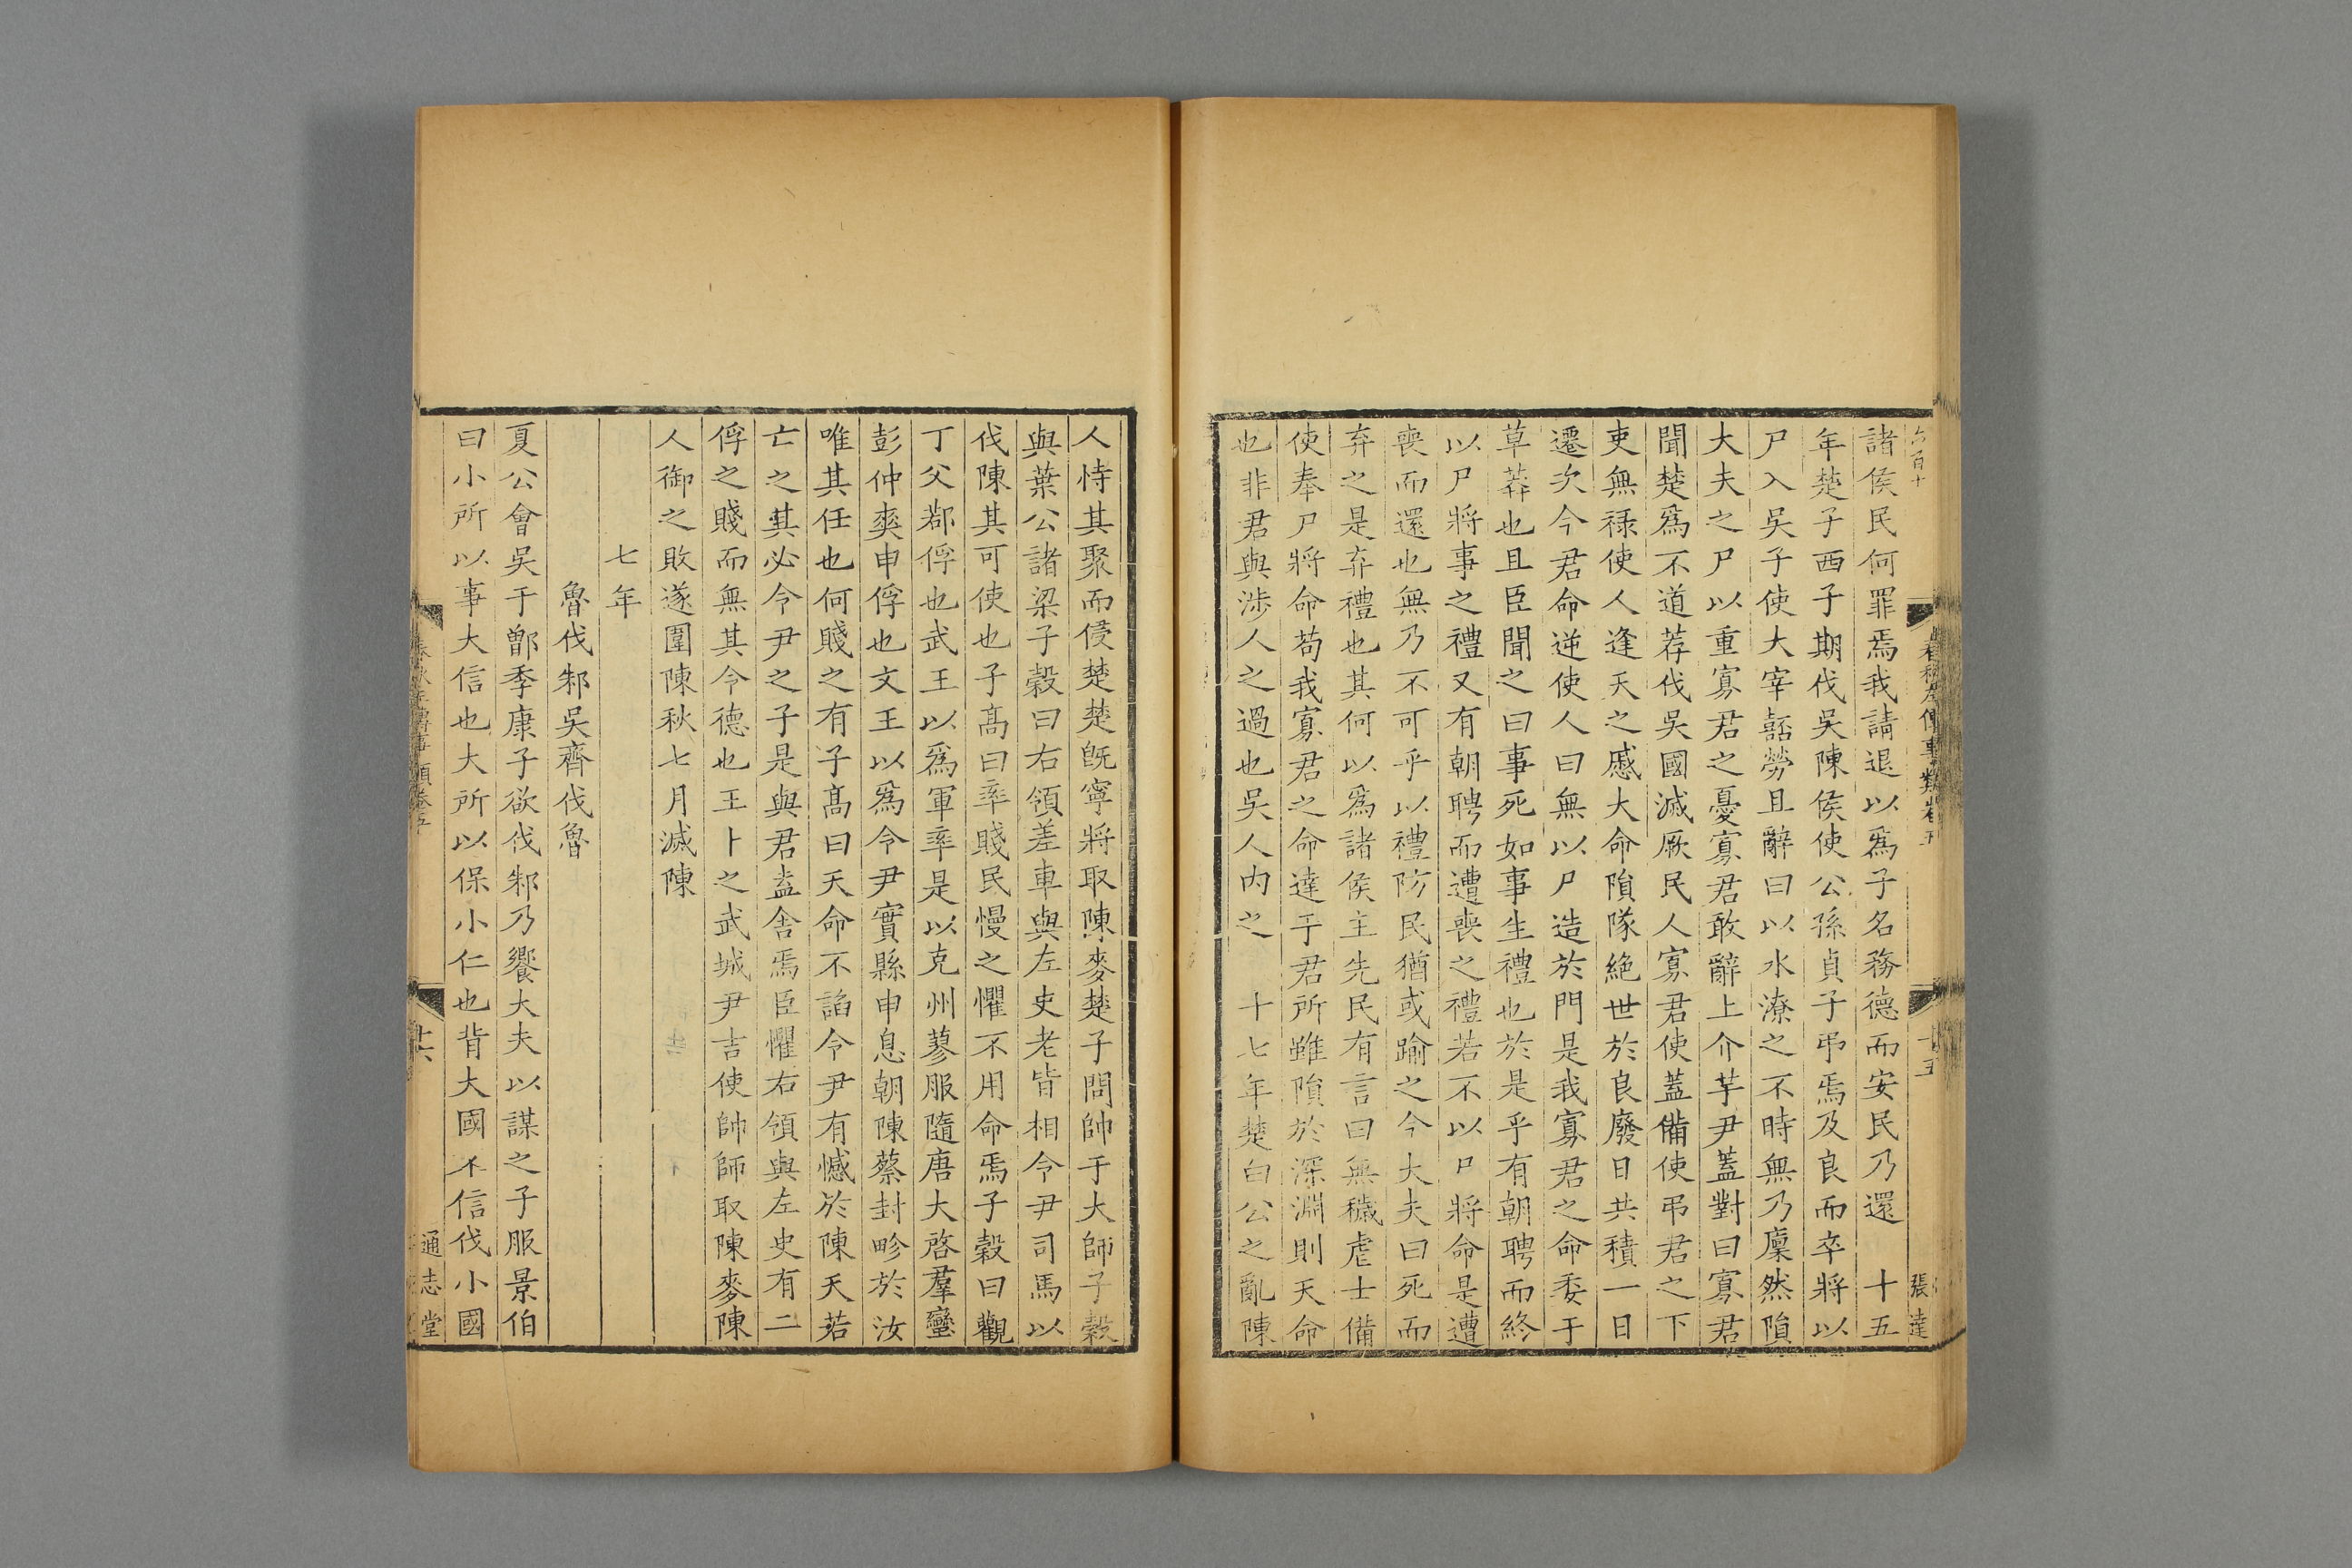 六百十
春秋左傳事類卷五
十五
張達
諸侯民何罪焉我請退以爲子名務德而安民乃還 十五
年楚子西子期伐吳陳侯使公孫貞子弔焉及良而卒將以
尸入吳子使大宰嚭勞且辭曰以水潦之不時無乃廩然隕
大夫之尸以重寡君之憂寡君敢辭上介芋尹蓋對曰寡君
聞楚爲不道荐伐吳國滅厥民人寡君使蓋備使弔君之下
吏無祿使人逢天之慼大命隕隊絶世於良廢日共積一日
遷次今君命逆使人曰無以尸造於門是我寡君之命委于
草莽也且臣聞之曰事死如事生禮也於是乎有朝聘而終
以尸將事之禮又有朝聘而遭喪之禮若不以尸將命是遭
喪而還也無乃不可乎以禮防民猶或踰之今大夫曰死而
弃之是弃禮也其何以爲諸侯主先民有言曰無穢虐士備
使奉尸將命苟我寡君之命達于君所雖隕於深淵則天命
也非君與涉人之過也吳人內之 十七年楚白公之亂陳
人恃其聚而侵楚楚旣寧將取陳麥楚子問帥于大師子穀
與葉公諸梁子穀曰右領差車與左史老皆相令尹司馬以
伐陳其可使也子高曰率賤民慢之懼不用命焉子穀曰觀
丁父鄀俘也武王以爲軍率是以克州蓼服隨唐大啓羣蠻
彭仲爽申俘也文王以爲令尹實縣申息朝陳蔡封畛於汝
唯其任也何賤之有子高曰天命不謟令尹有憾於陳天若
亡之其必令尹之子是與君盍舍焉臣懼右領與左史有二
俘之賤而無其令德也王卜之武城尹吉使帥師取陳麥陳
人御之敗遂圍陳秋七月滅陳
七年
魯伐邾吳齊伐魯
夏公會吳于鄫季康子欲伐邾乃饗大夫以謀之子服景伯
曰小所以事大信也大所以保小仁也背大國不信伐小國
十六
通志堂